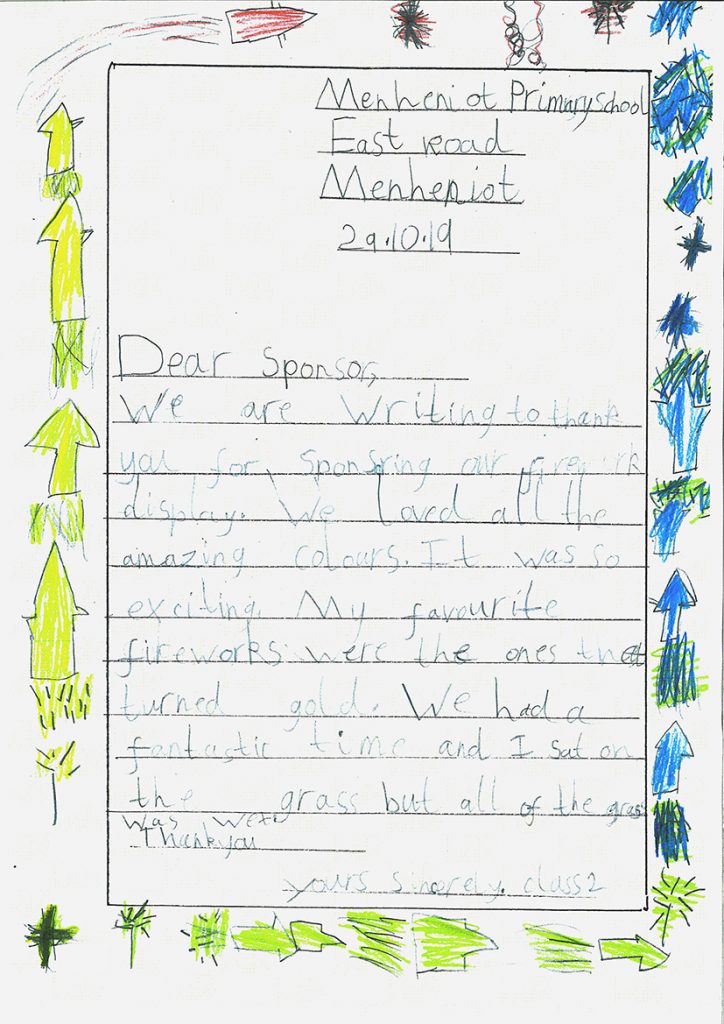 Menheniot Primary School
East road
Menheniot
29.10.19
Dear Sponsor,
We are writing to thank
you for sponsring our firework
display. We loved all the
amazing colours. It was so
exciting. My favourite
fireworks were the ones that
turned gold. We had a
fantastic time and I sat on
the grass but all of the grass
was wet.
Thankyou
yours sincerely. class 2